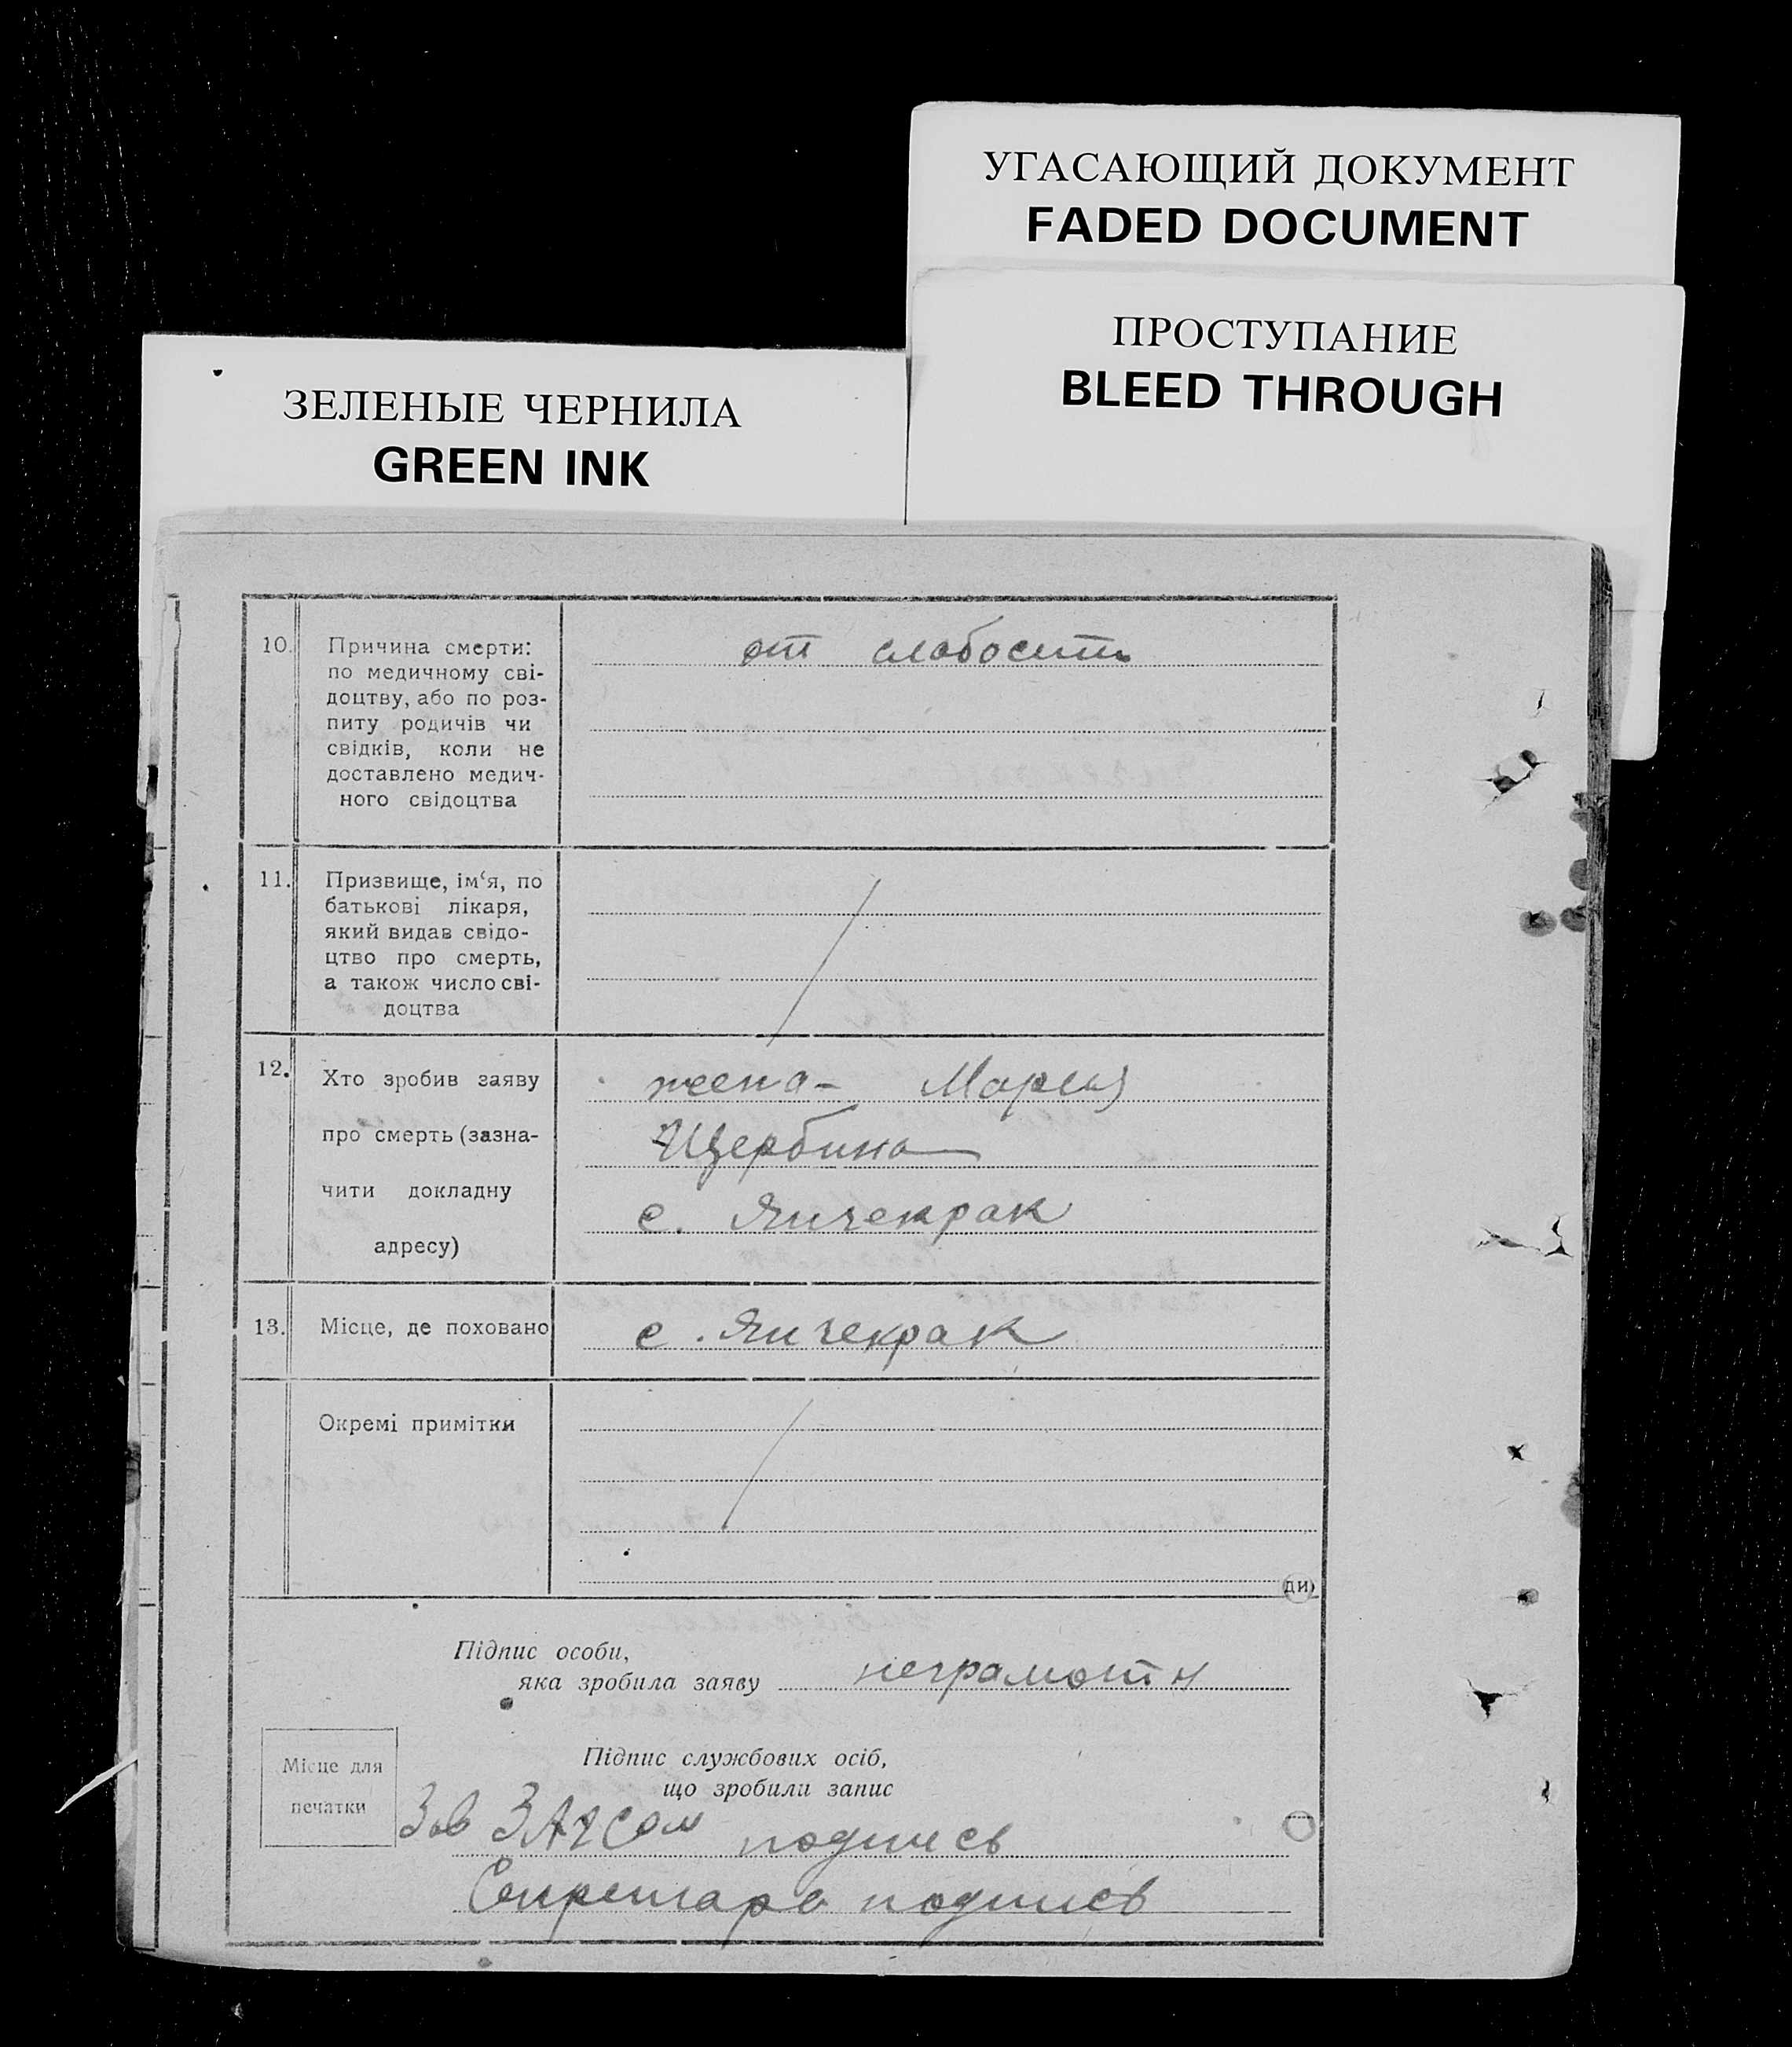 УГАСАЮЩИЙ ДОКУМЕНТ
FADED DOCUMENT
ПРОСТУПАНИЕ
BLEED THROUGH
ЗЕЛЕНЫЕ ЧЕРНИЛА
GREEN INK
10. Причина смерти:
по медичному сві-
доцтву, або по роз-
питу родичів чи
свідків, коли не
доставлено медич-
ного свідоцтва
от слабости
11. Призвище, ім‘я, по
батькові лікаря,
який видав свідо-
цтво про смерть,
а також число сві-
доцтва
12. Хто зробив заяву
про смерть (зазна-
чити докладну
адресу)
жена - Мария
Щербина
с. Янчекрак
13. Місце, де поховано
с. Янчекрак
Окремі примітки
ди
Підпис особи,
яка зробила заяву неграмотн
Місце для
печатки
Підпис службових осіб,
що зробили запис
Зав ЗАГСом подпись
Секретарь подпись